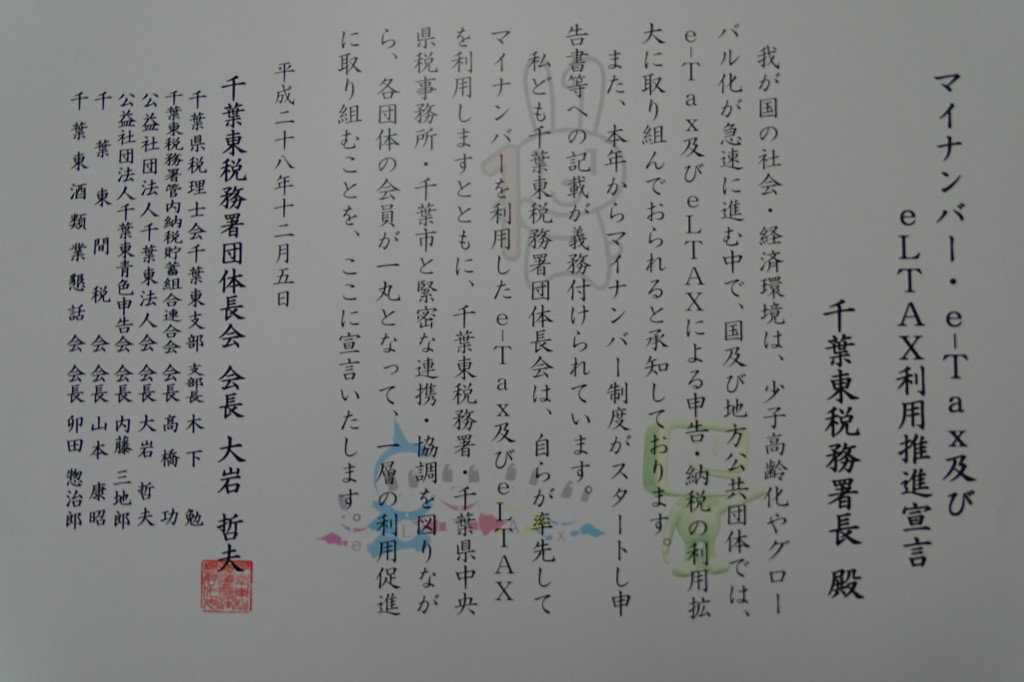 マイナンバー・e-Tax及び
eLTAX利用推進宣言
千葉東税務署長 殿
我が国の社会・経済環境は、少子高齢化やグロー
バル化が急速に進む中で、国及び地方公共団体では、
e-Tax及びeLTAXによる申告・納税の利用拡
大に取り組んでおられると承知しております。
また、本年からマイナンバー制度がスタートし申
告書等への記載が義務付けられています。
私ども千葉東税務署団体長会は、自らが率先して
マイナンバーを利用したe-Tax及びeLTAX
を利用しますとともに、千葉東税務署・千葉県中央
県税事務所・千葉市と緊密な連携・協調を図りなが
ら、各団体の会員が一丸となって、一層の利用促進
に取り組むことを、ここに宣言いたします。
平成二十八年十二月五日
千葉東税務署団体長会 会長 大岩 哲夫
千葉県税理士会千葉東支部 支部長 木下 勉
千葉東税務署管内納税貯蓄組合連合会 会長 髙橋 功
公益社団法人千葉東法人会 会長 大岩 哲夫
公益社団法人千葉東青色申告会 会長 内藤 三地郎
千葉東間税会 会長 山本 康昭
千葉東酒類業懇話会 会長 卯田 惣治郎